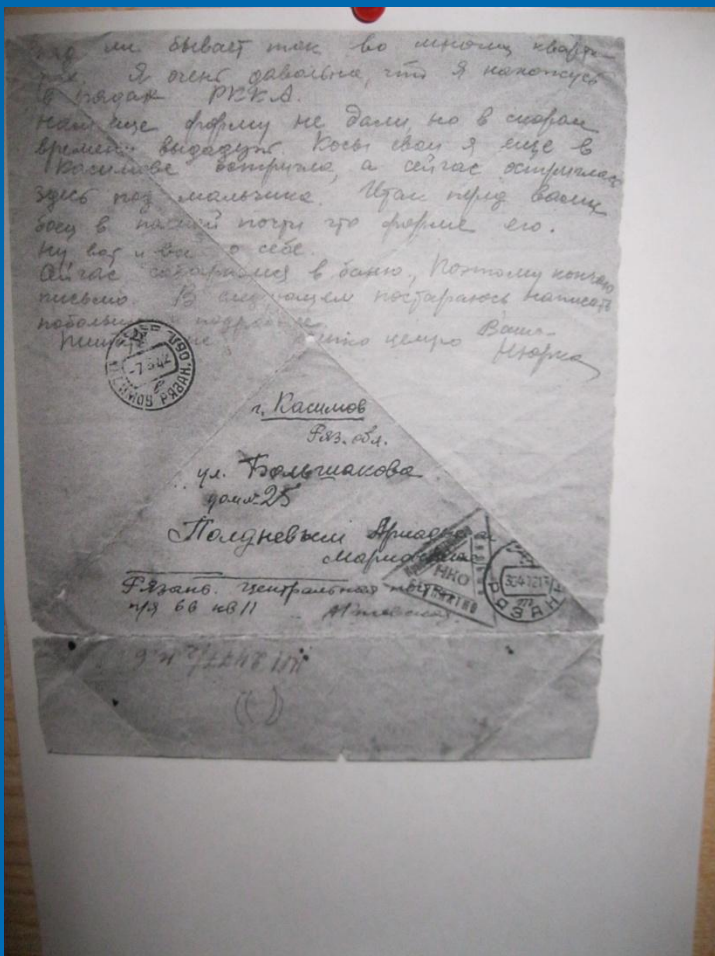 ли бывает так во многих кварти-
рах. Я очень давольна, что я нахожусь
в рядах РККА.
Нам еще форму не дали, но в скором
времени выдадут. Косы свои я еще в
Касимове остригла, а сейчас остриглась
здесь под мальчика. Итак перед вами
боец в полной почти что форме его.
Ну вот и все о себе.
Сейчас собираемся в баню, Поэтому кончаю
письмо. В следующем постараюсь написать
побольше и подробнее
Ваша
Нюрка
г. Касимов
Ряз. обл.
ул. Большакова
дом № 25
Полдневым
Рязань. Центральная
п/я 66 кв 11
КАСИМОВ РЯЗАН. ОБЛ.
НКО
БЕСПЛАТНО
РЯЗАНЬ